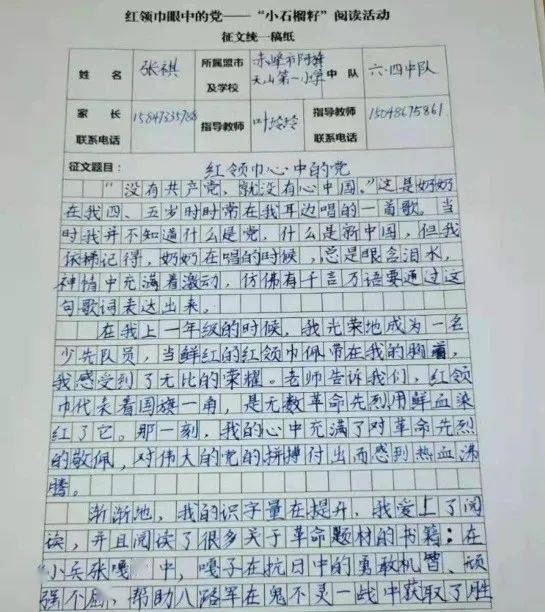 红领巾眼中的党——“小石榴籽”阅读活动
征文统一稿纸
姓 名 张祺 所属盟市及学校 赤峰市阿旗天山第一小学 中 队 六·四中队
家 长 联系电话 15847335788 指导教师 叶玲玲 指导教师联系电话 15048675861
征文题目： 红领巾心中的党
“没有共产党，就没有心中国。”这是奶奶
在我四、五岁时时常在我耳边唱的一首歌。当
时我并不知道什么是党，什么是新中国，但我
依稀记得，奶奶在唱的时候，总是眼含泪水，
神情中充满着激动，仿佛有千言万语要通过这
句歌词表达出来。
在我上一年级的时候，我光荣地成为一名
少先队员，当鲜红的红领巾佩带在我的胸着，
我感受到了无比的荣耀。老师告诉我们，红领
巾代表着国旗一角，是无数革命先烈用鲜血染
红了它。那一刻，我的心中充满了对革命先烈
的敬佩，对伟大的党的拼搏付出而感到热血沸
腾。
渐渐地，我的识字量在提升，我爱上了阅
读，并且阅读了很多关于革命题材的书籍：在
小兵张嘎 中，嘎子在抗日中的勇敢机智、顽
强不屈，帮助八路军在鬼不灵一战中获取了胜